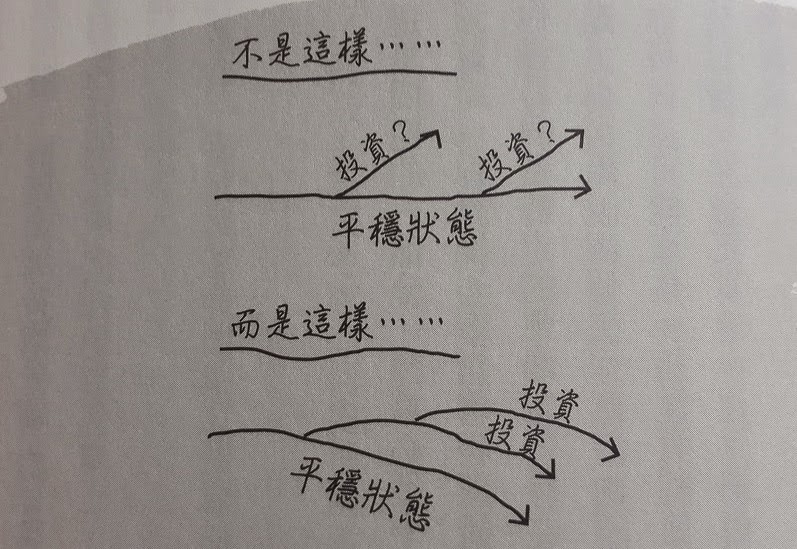 不是這樣⋯⋯
投資？
投資？
平穩狀態
而是這樣⋯⋯
投資
投資
平穩狀態